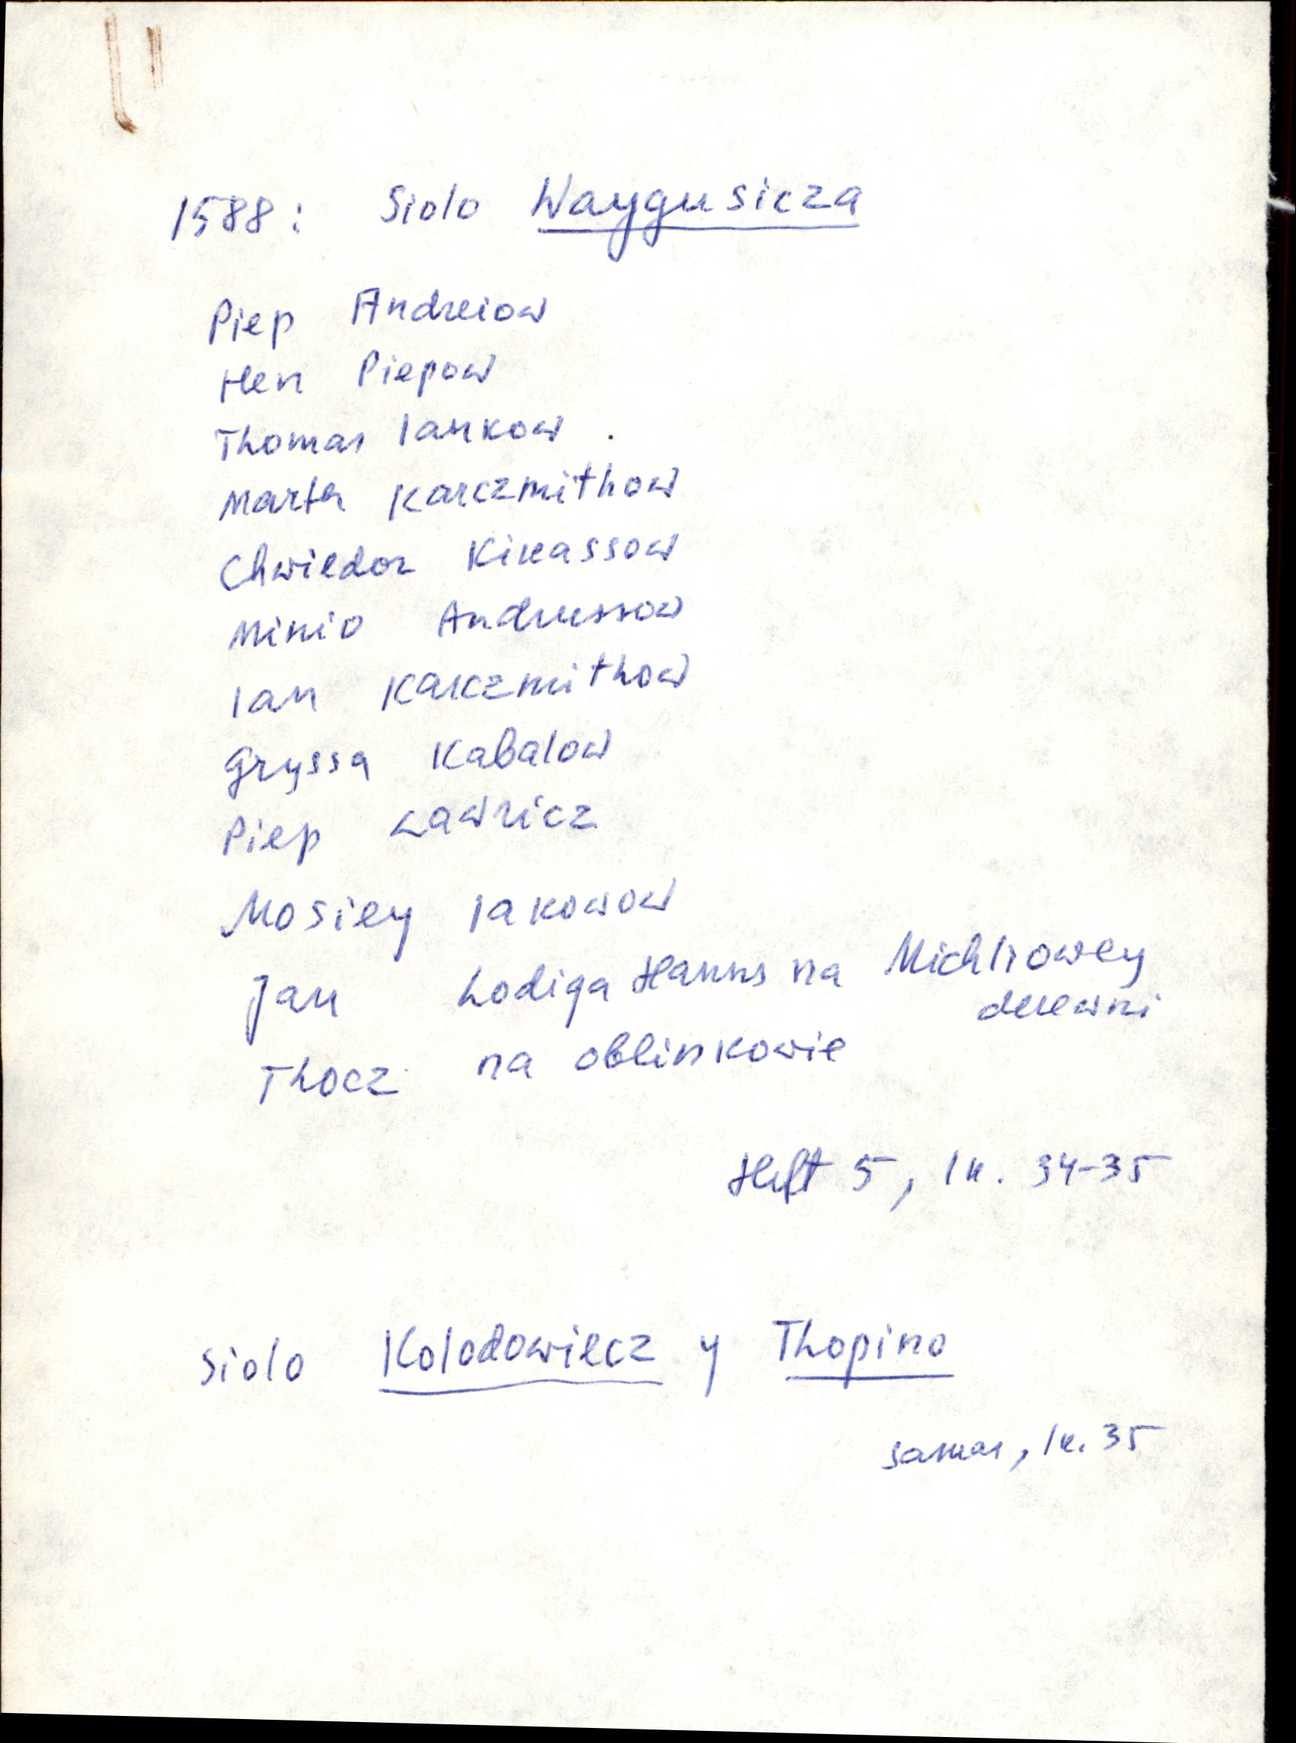 1588: Siolo Waygusicza
Piep Andreiow
Hen Piepow
Thomas Iankow
Marta Karczmithow
Chwiedor Kirassow
Minio Andrussow
Ian Karczmithow
Gryssa Kabalow
Piep Lawricz
Mosiey Iakowow
Jan Lodiga Hanns na Michlrowey
derewni
Thocz na oblinkowie
Heft 5, lk. 34-35
Siolo Kolodowiecz y Thopino
samas, lk. 35